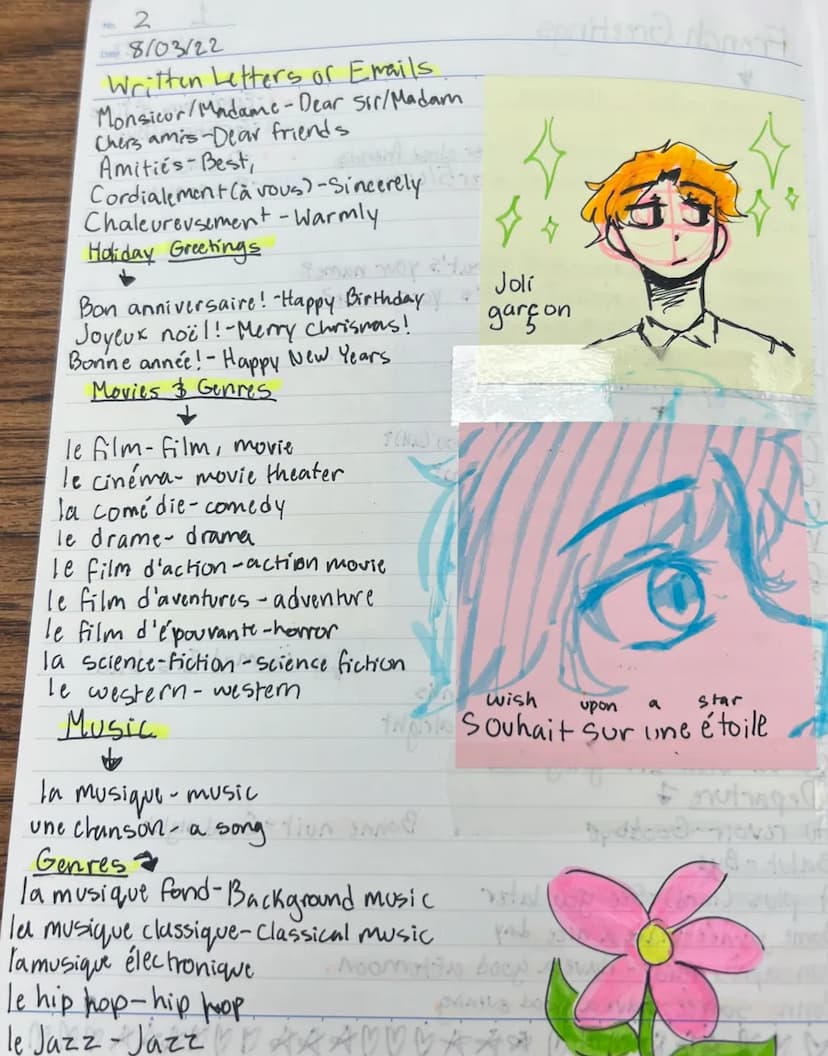 No. 2
Date 8/03/22
Written Letters or Emails
Monsieur/Madame-Dear Sir/Madam
Chers amis-Dear friends
Amitiés-Best,
Cordialement (à vous)-Sincerely
Chaleureusement-Warmly
Holiday Greetings
Bon anniversaire!-Happy Birthday
Joyeux noël!-Merry Chrismas!
Bonne année!-Happy New Years
Movies & Genres
le film-film, movie
le cinéma-movie theater
la comédie-comedy
le drame-drama
le film d'action-action movie
le film d'aventures-adventure
le film d'épouvante-horror
la science-fiction-science fiction
le western-western
Music
la musique-music
une chanson-a song
Genres
la musique fond-Background music
la musique classique-Classical music
la musique électronique
le hip hop-hip hop
le Jazz-Jazz
Joli
garçon
wish upon a star
Souhait sur une étoile